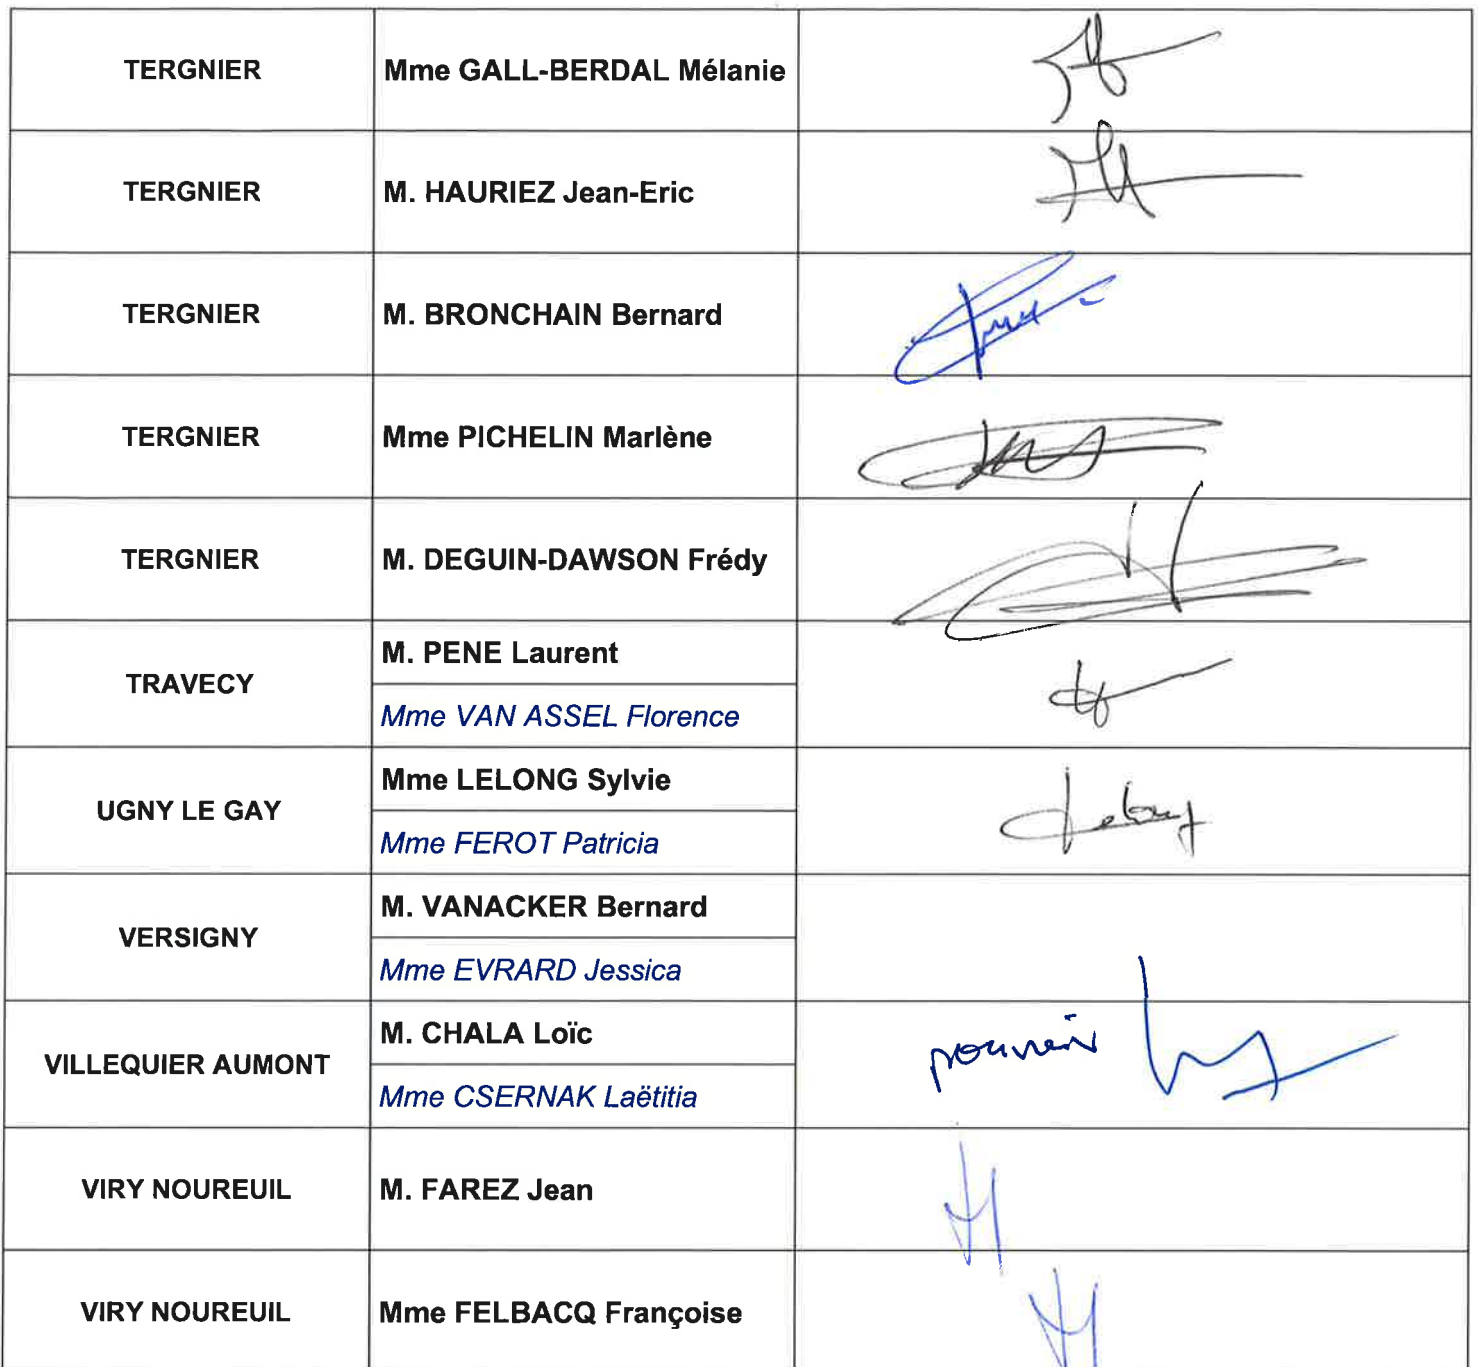 TERGNIER
Mme GALL-BERDAL Mélanie
TERGNIER
M. HAURIEZ Jean-Eric
TERGNIER
M. BRONCHAIN Bernard
TERGNIER
Mme PICHELIN Marlène
TERGNIER
M. DEGUIN-DAWSON Frédy
TRAVECY
M. PENE Laurent
Mme VAN ASSEL Florence
UGNY LE GAY
Mme LELONG Sylvie
Mme FEROT Patricia
VERSIGNY
M. VANACKER Bernard
Mme EVRARD Jessica
VILLEQUIER AUMONT
M. CHALA Loïc
Mme CSERNAK Laëtitia
pouvoir
VIRY NOUREUIL
M. FAREZ Jean
VIRY NOUREUIL
Mme FELBACQ Françoise